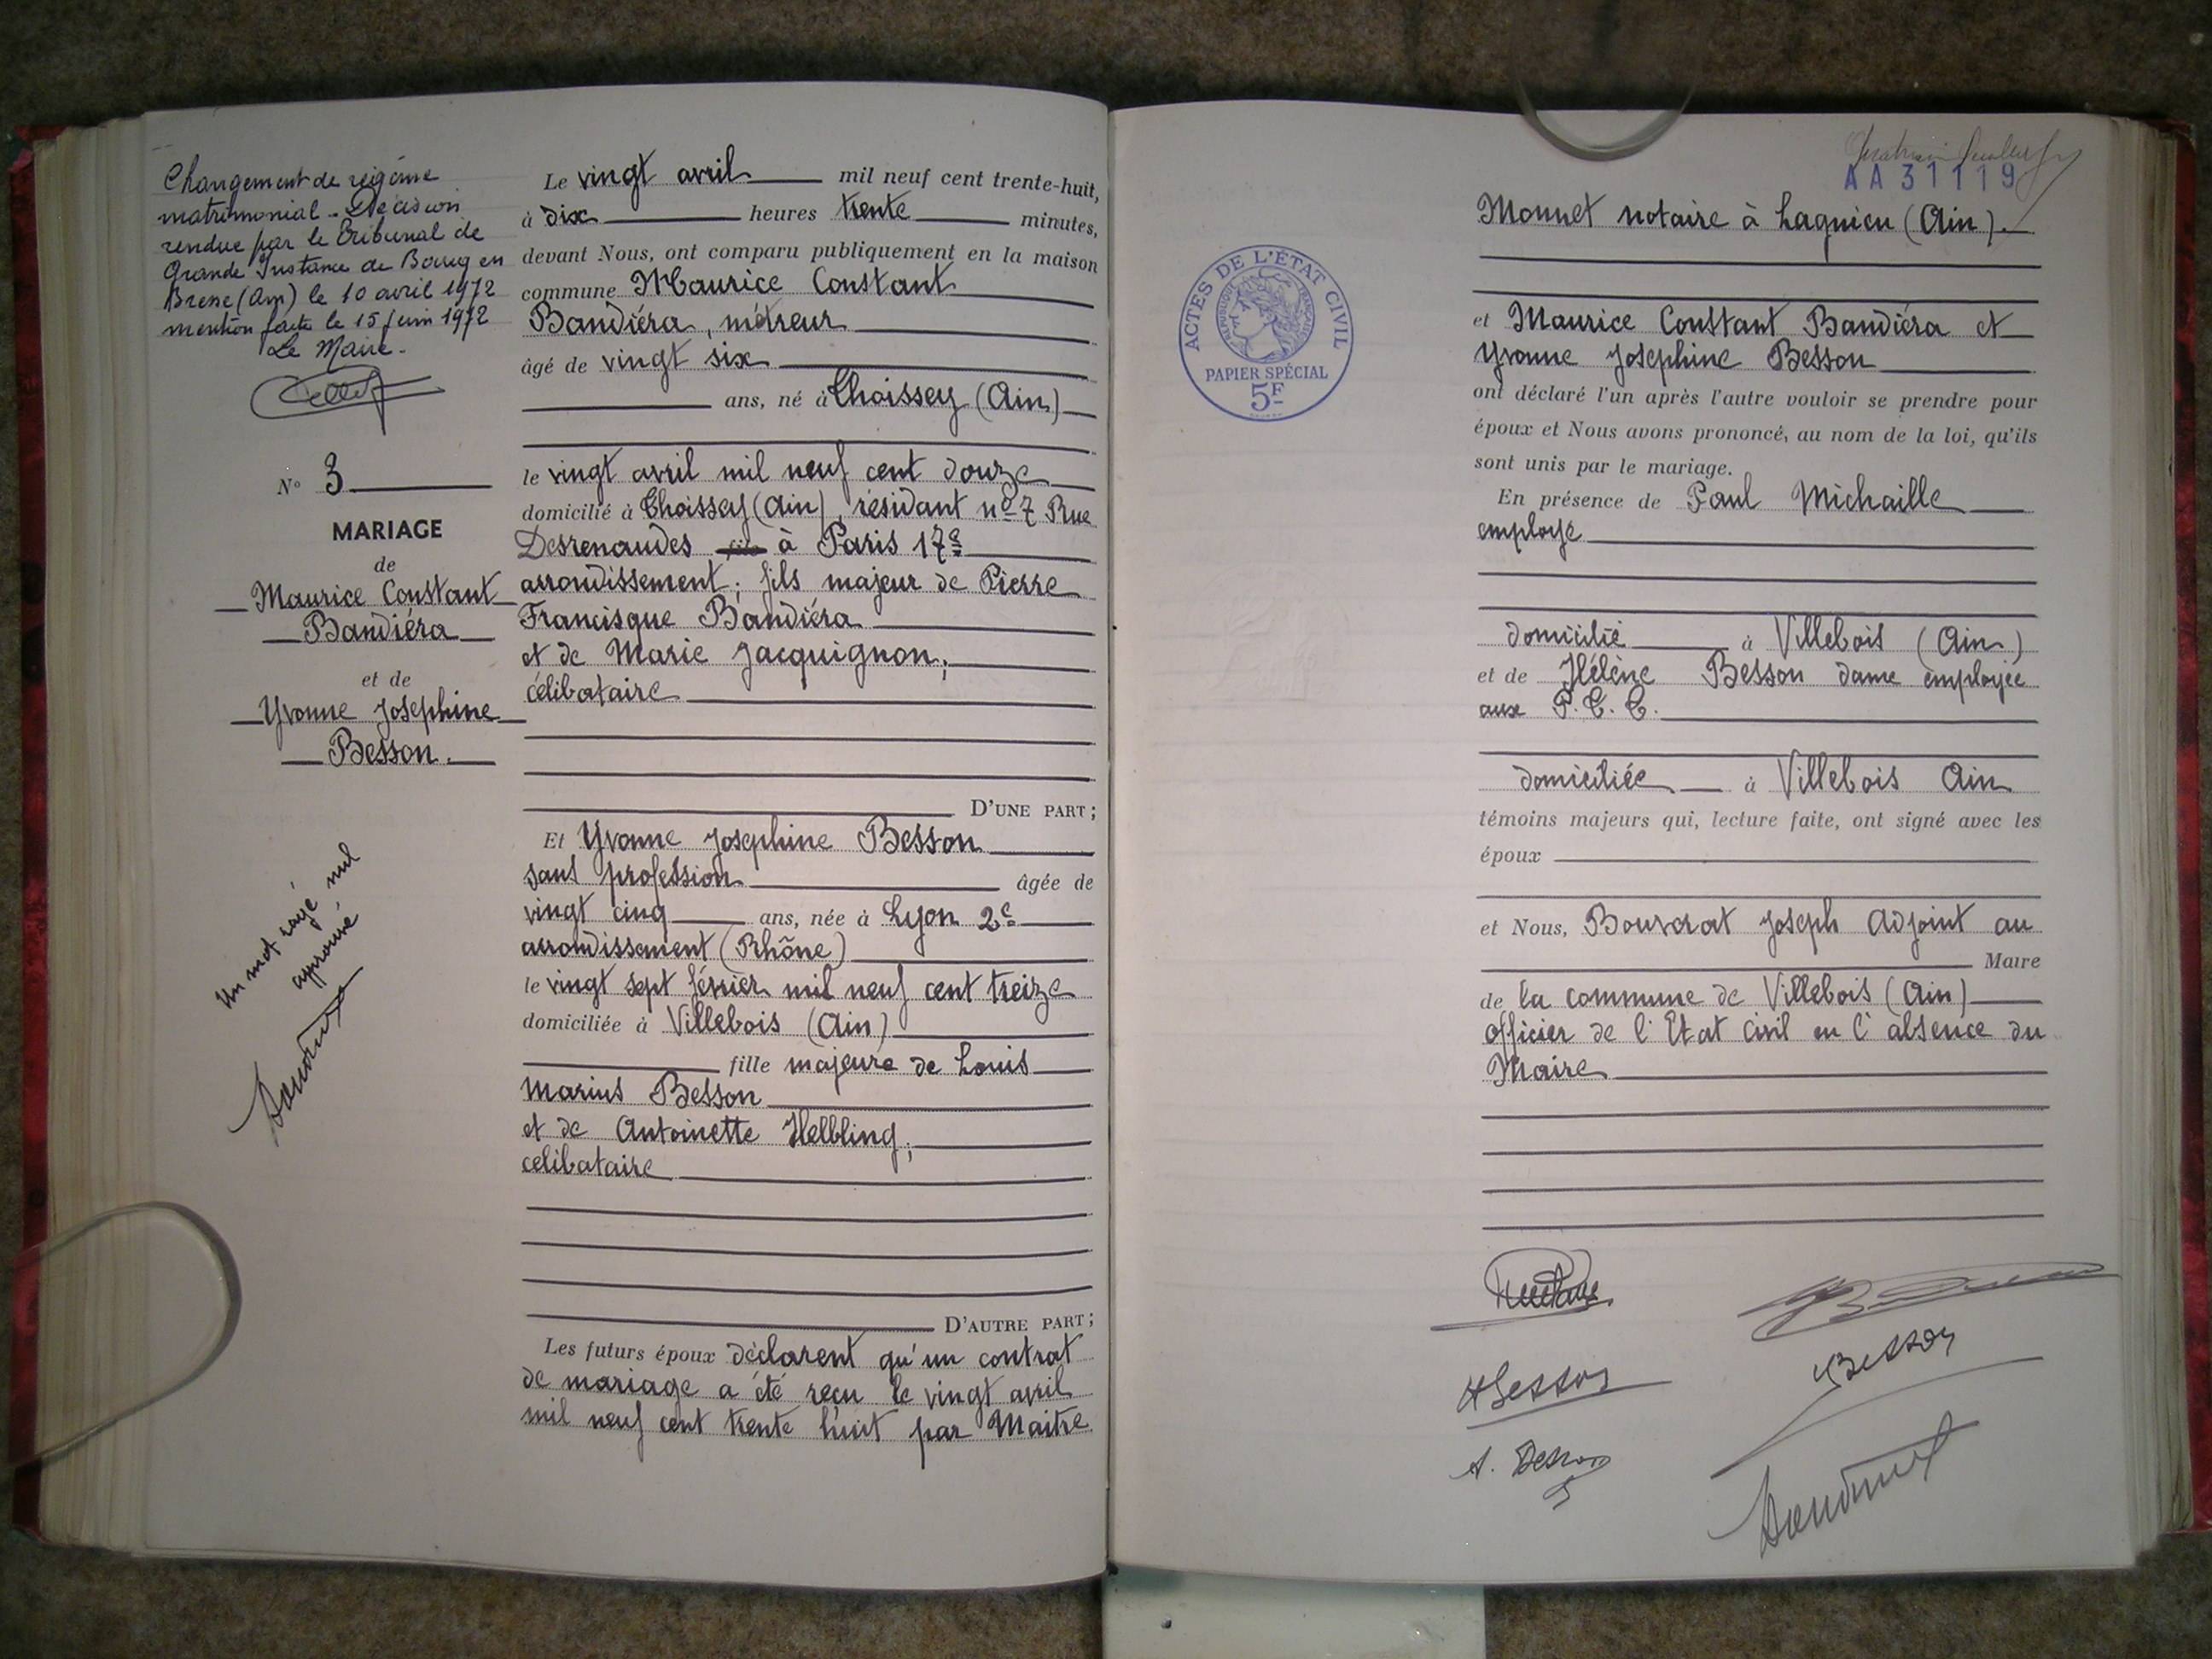 Changement de régime
matrimonial - Décision
rendue par le Tribunal de
Grande Instance de Bourg en
Bresse (Ain) le 10 avril 1972
mention faite le 15 juin 1972
Le Maire.
N° 3
MARIAGE
de
Maurice Constant
Bandiéra
et de
Yvonne Josephine
Besson.
Un mot rayé nul
approuvé
Le vingt avril mil neuf cent trente-huit,
à dix heures trente minutes,
devant Nous, ont comparu publiquement en la maison
commune Maurice Constant
Bandiéra, métreur
âgé de vingt six
ans, né à Thoissey (Ain)
le vingt avril mil neuf cent douze
domicilié à Thoissey (Ain), résidant n° 7 Rue
Desrenaudes à Paris 17e
arrondissement; fils majeur de Pierre
Francisque Bandiéra
et de Marie Jacquignon;
célibataire
D'UNE PART;
Et Yvonne Josephine Besson
sans profession âgée de
vingt cinq ans, née à Lyon 2e
arrondissement (Rhône)
le vingt sept février mil neuf cent treize
domiciliée à Villebois (Ain)
fille majeure de Louis
Marius Besson
et de Antoinette Helbling;
celibataire
D'AUTRE PART;
Les futurs époux déclarent qu'un contrat
de mariage a été reçu le vingt avril
mil neuf cent trente huit par Maitre
AA31119
Monnet notaire à Lagnieu (Ain).
ACTES DE L'ÉTAT CIVIL
RÉPUBLIQUE FRANÇAISE
PAPIER SPÉCIAL
5F
et Maurice Constant Bandiéra et
Yvonne Josephine Besson
ont déclaré l'un après l'autre vouloir se prendre pour
époux et Nous avons prononcé, au nom de la loi, qu'ils
sont unis par le mariage.
En présence de Paul Michaille
employé
domicilié à Villebois (Ain)
et de Hélène Besson dame employée
aux P.T.T.
domiciliée à Villebois Ain
témoins majeurs qui, lecture faite, ont signé avec les
époux
et Nous, Bouvrat Joseph Adjoint au
Maire
de la commune de Villebois (Ain)
officier de l'Etat Civil en l'absence du
Maire
HBesson
YBesson
A. Besson